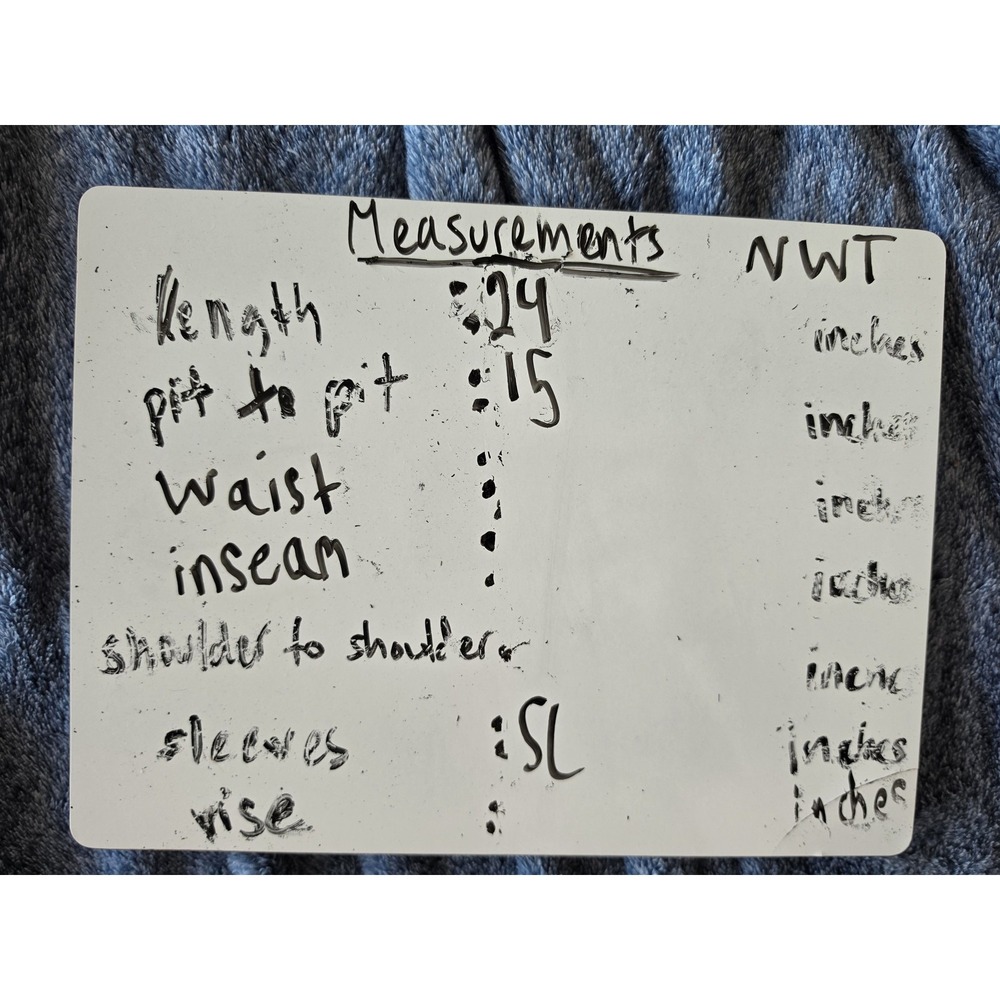 Measurements NWT
length : 24 inches
pit to pit : 15 inches
waist : inches
inseam : inches
shoulder to shoulder :
sleeves : SL inches
rise : inches